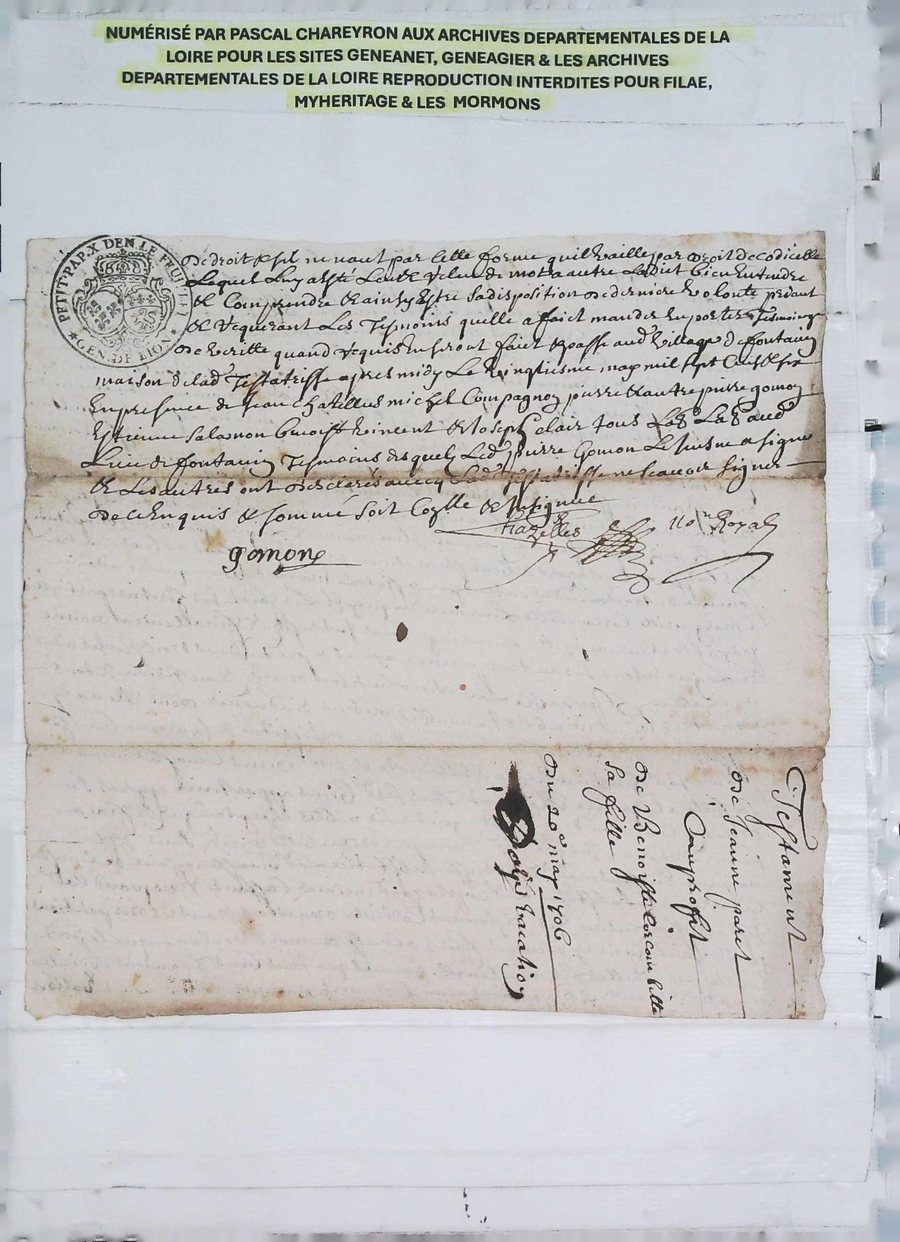 NUMÉRISÉ PAR PASCAL CHAREYRON AUX ARCHIVES DEPARTEMENTALES DE LA
LOIRE POUR LES SITES GENEANET, GENEAGIER & LES ARCHIVES
DEPARTEMENTALES DE LA LOIRE REPRODUCTION INTERDITES POUR FILAE,
MYHERITAGE & LES MORMONS
PETIT·PAP.X DEN. LE FEUILLET
GEN. DE LION
de droit & sil ne vaut par cette forme quil vaille par droit de codicille
Lequel luy a esté Leu & Releu de mot a autre Ladict bien Entendre
& Comprendre & ainsy Estre sa disposition de derniere volonté priant
& Requerant Les Tesmoins quelle a faict mander En porter Tesmoing
de verité quand Requis En seront faict & passé aud village de fontanes
maison de lad Testatrisse apres midy Le vingtiesme may mil sept Cent & six
En presence de Jean chatellus michel Compagnon pierre & autre pierre gomon
Estienne Salamon benoist vincent & Joseph clair tous
Lieu de fontanes Tesmoins desquels Led pierre Gomon Le Jeusne a signé
& Les autres ont desclerés avecq Lad Testatrisse ne scavoir signer
de ce Enquis & sommé soit & Insignué
gomon
Chazelles
no Royal
Testament
de Jeanne paret
Au proffit
de Benoiste
sa fille
du 20e may 1706